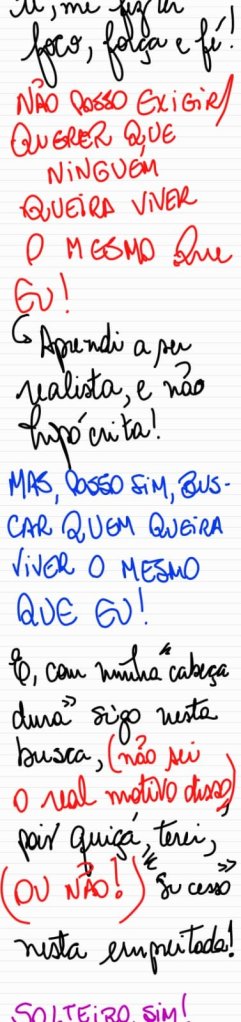 , me fiz ter
foco, força e fé!
NÃO POSSO EXIGIR/
QUERER QUE
NINGUÉM
QUEIRA VIVER
O MESMO QUE
EU!
Aprendi a ser
realista, e não
hipócrita!
MAS, POSSO SIM, BUS-
CAR QUEM QUEIRA
VIVER O MESMO
QUE EU!
E, com minha "cabeça
dura" sigo nesta
busca, (não sei
o real motivo disso)
pois quiçá, terei,
(OU NÃO!) "sucesso"
nesta empreitada!
SOLTEIRO, SIM!